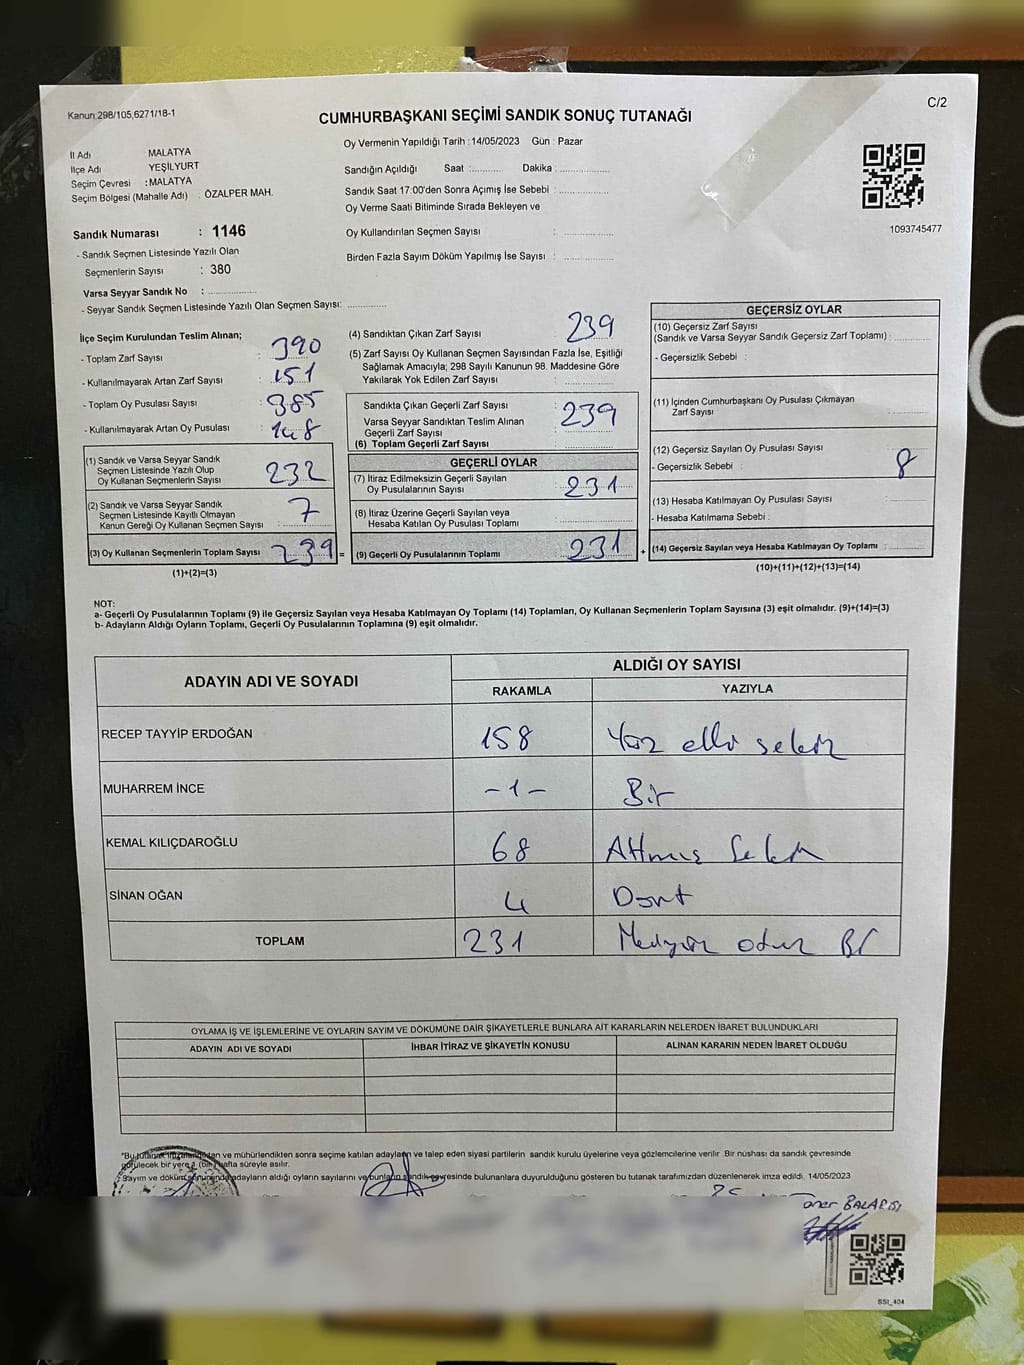 Kanun:298/105,6271/18-1
C/2
CUMHURBAŞKANI SEÇİMİ SANDIK SONUÇ TUTANAĞI
Oy Vermenin Yapıldığı Tarih : 14/05/2023 Gün : Pazar
İl Adı MALATYA
İlçe Adı YEŞİLYURT
Seçim Çevresi : MALATYA
Seçim Bölgesi (Mahalle Adı) : ÖZALPER MAH.
Sandığın Açıldığı Saat :............ Dakika :..................
Sandık Saat 17:00'den Sonra Açımış İse Sebebi :..................
Oy Verme Saati Bitiminde Sırada Bekleyen ve
Oy Kullandırılan Seçmen Sayısı :..................
Birden Fazla Sayım Döküm Yapılmış İse Sayısı :..................
1093745477
Sandık Numarası : 1146
- Sandık Seçmen Listesinde Yazılı Olan
Seçmenlerin Sayısı : 380
Varsa Seyyar Sandık No :..................
- Seyyar Sandık Seçmen Listesinde Yazılı Olan Seçmen Sayısı: ..............
İlçe Seçim Kurulundan Teslim Alınan;
- Toplam Zarf Sayısı : 390
- Kullanılmayarak Artan Zarf Sayısı : 151
- Toplam Oy Pusulası Sayısı : 385
- Kullanılmayarak Artan Oy Pusulası : 148
(1) Sandık ve Varsa Seyyar Sandık
Seçmen Listesinde Yazılı Olup
Oy Kullanan Seçmenlerin Sayısı : 232
(2) Sandık ve Varsa Seyyar Sandık
Seçmen Listesinde Kayıtlı Olmayan
Kanun Gereği Oy Kullanan Seçmen Sayısı : 7
(3) Oy Kullanan Seçmenlerin Toplam Sayısı : 239 =
(1)+(2)=(3)
(4) Sandıktan Çıkan Zarf Sayısı : 239
(5) Zarf Sayısı Oy Kullanan Seçmen Sayısından Fazla İse, Eşitliği
Sağlamak Amacıyla; 298 Sayılı Kanunun 98. Maddesine Göre
Yakılarak Yok Edilen Zarf Sayısı :..................
Sandıkta Çıkan Geçerli Zarf Sayısı : 239
Varsa Seyyar Sandıktan Teslim Alınan
Geçerli Zarf Sayısı
(6) Toplam Geçerli Zarf Sayısı
GEÇERLİ OYLAR
(7) İtiraz Edilmeksizin Geçerli Sayılan
Oy Pusulalarının Sayısı : 231
(8) İtiraz Üzerine Geçerli Sayılan veya
Hesaba Katılan Oy Pusulası Toplamı
(9) Geçerli Oy Pusulalarının Toplamı : 231 +
GEÇERSİZ OYLAR
(10) Geçersiz Zarf Sayısı
(Sandık ve Varsa Seyyar Sandık Geçersiz Zarf Toplamı) :............
- Geçersizlik Sebebi :
(11) İçinden Cumhurbaşkanı Oy Pusulası Çıkmayan
Zarf Sayısı :............
(12) Geçersiz Sayılan Oy Pusulası Sayısı
- Geçersizlik Sebebi : 8
(13) Hesaba Katılmayan Oy Pusulası Sayısı :............
- Hesaba Katılmama Sebebi :
(14) Geçersiz Sayılan veya Hesaba Katılmayan Oy Toplamı :............
(10)+(11)+(12)+(13)=(14)
NOT:
a- Geçerli Oy Pusulalarının Toplamı (9) ile Geçersiz Sayılan veya Hesaba Katılmayan Oy Toplamı (14) Toplamları, Oy Kullanan Seçmenlerin Toplam Sayısına (3) eşit olmalıdır. (9)+(14)=(3)
b- Adayların Aldığı Oyların Toplamı, Geçerli Oy Pusulalarının Toplamına (9) eşit olmalıdır.
ADAYIN ADI VE SOYADI ALDIĞI OY SAYISI
RAKAMLA YAZIYLA
RECEP TAYYİP ERDOĞAN 158 Yüz elli sekiz
MUHARREM İNCE - 1 - Bir
KEMAL KILIÇDAROĞLU 68 Altmış Sekiz
SİNAN OĞAN 4 Dört
TOPLAM 231 otuz Bir
OYLAMA İŞ VE İŞLEMLERİNE VE OYLARIN SAYIM VE DÖKÜMÜNE DAİR ŞİKAYETLERLE BUNLARA AİT KARARLARIN NELERDEN İBARET BULUNDUKLARI
ADAYIN ADI VE SOYADI İHBAR İTİRAZ VE ŞİKAYETİN KONUSU ALINAN KARARIN NEDEN İBARET OLDUĞU
ve mühürlendikten sonra seçime katılan adayların ve talep eden siyasi partilerin sandık kurulu üyelerine veya gözlemcilerine verilir .Bir nüshası da sandık çevresinde
görülecek bir yere 1 (bir) hafta süreyle asılır.
Sayım ve döküm sonucunda adayların aldığı oyların sayılarını ve bunların sandık çevresinde bulunanlara duyurulduğunu gösteren bu tutanak tarafımızdan düzenlenerek imza edildi. 14/05/2023
BALARISI
SSI_404